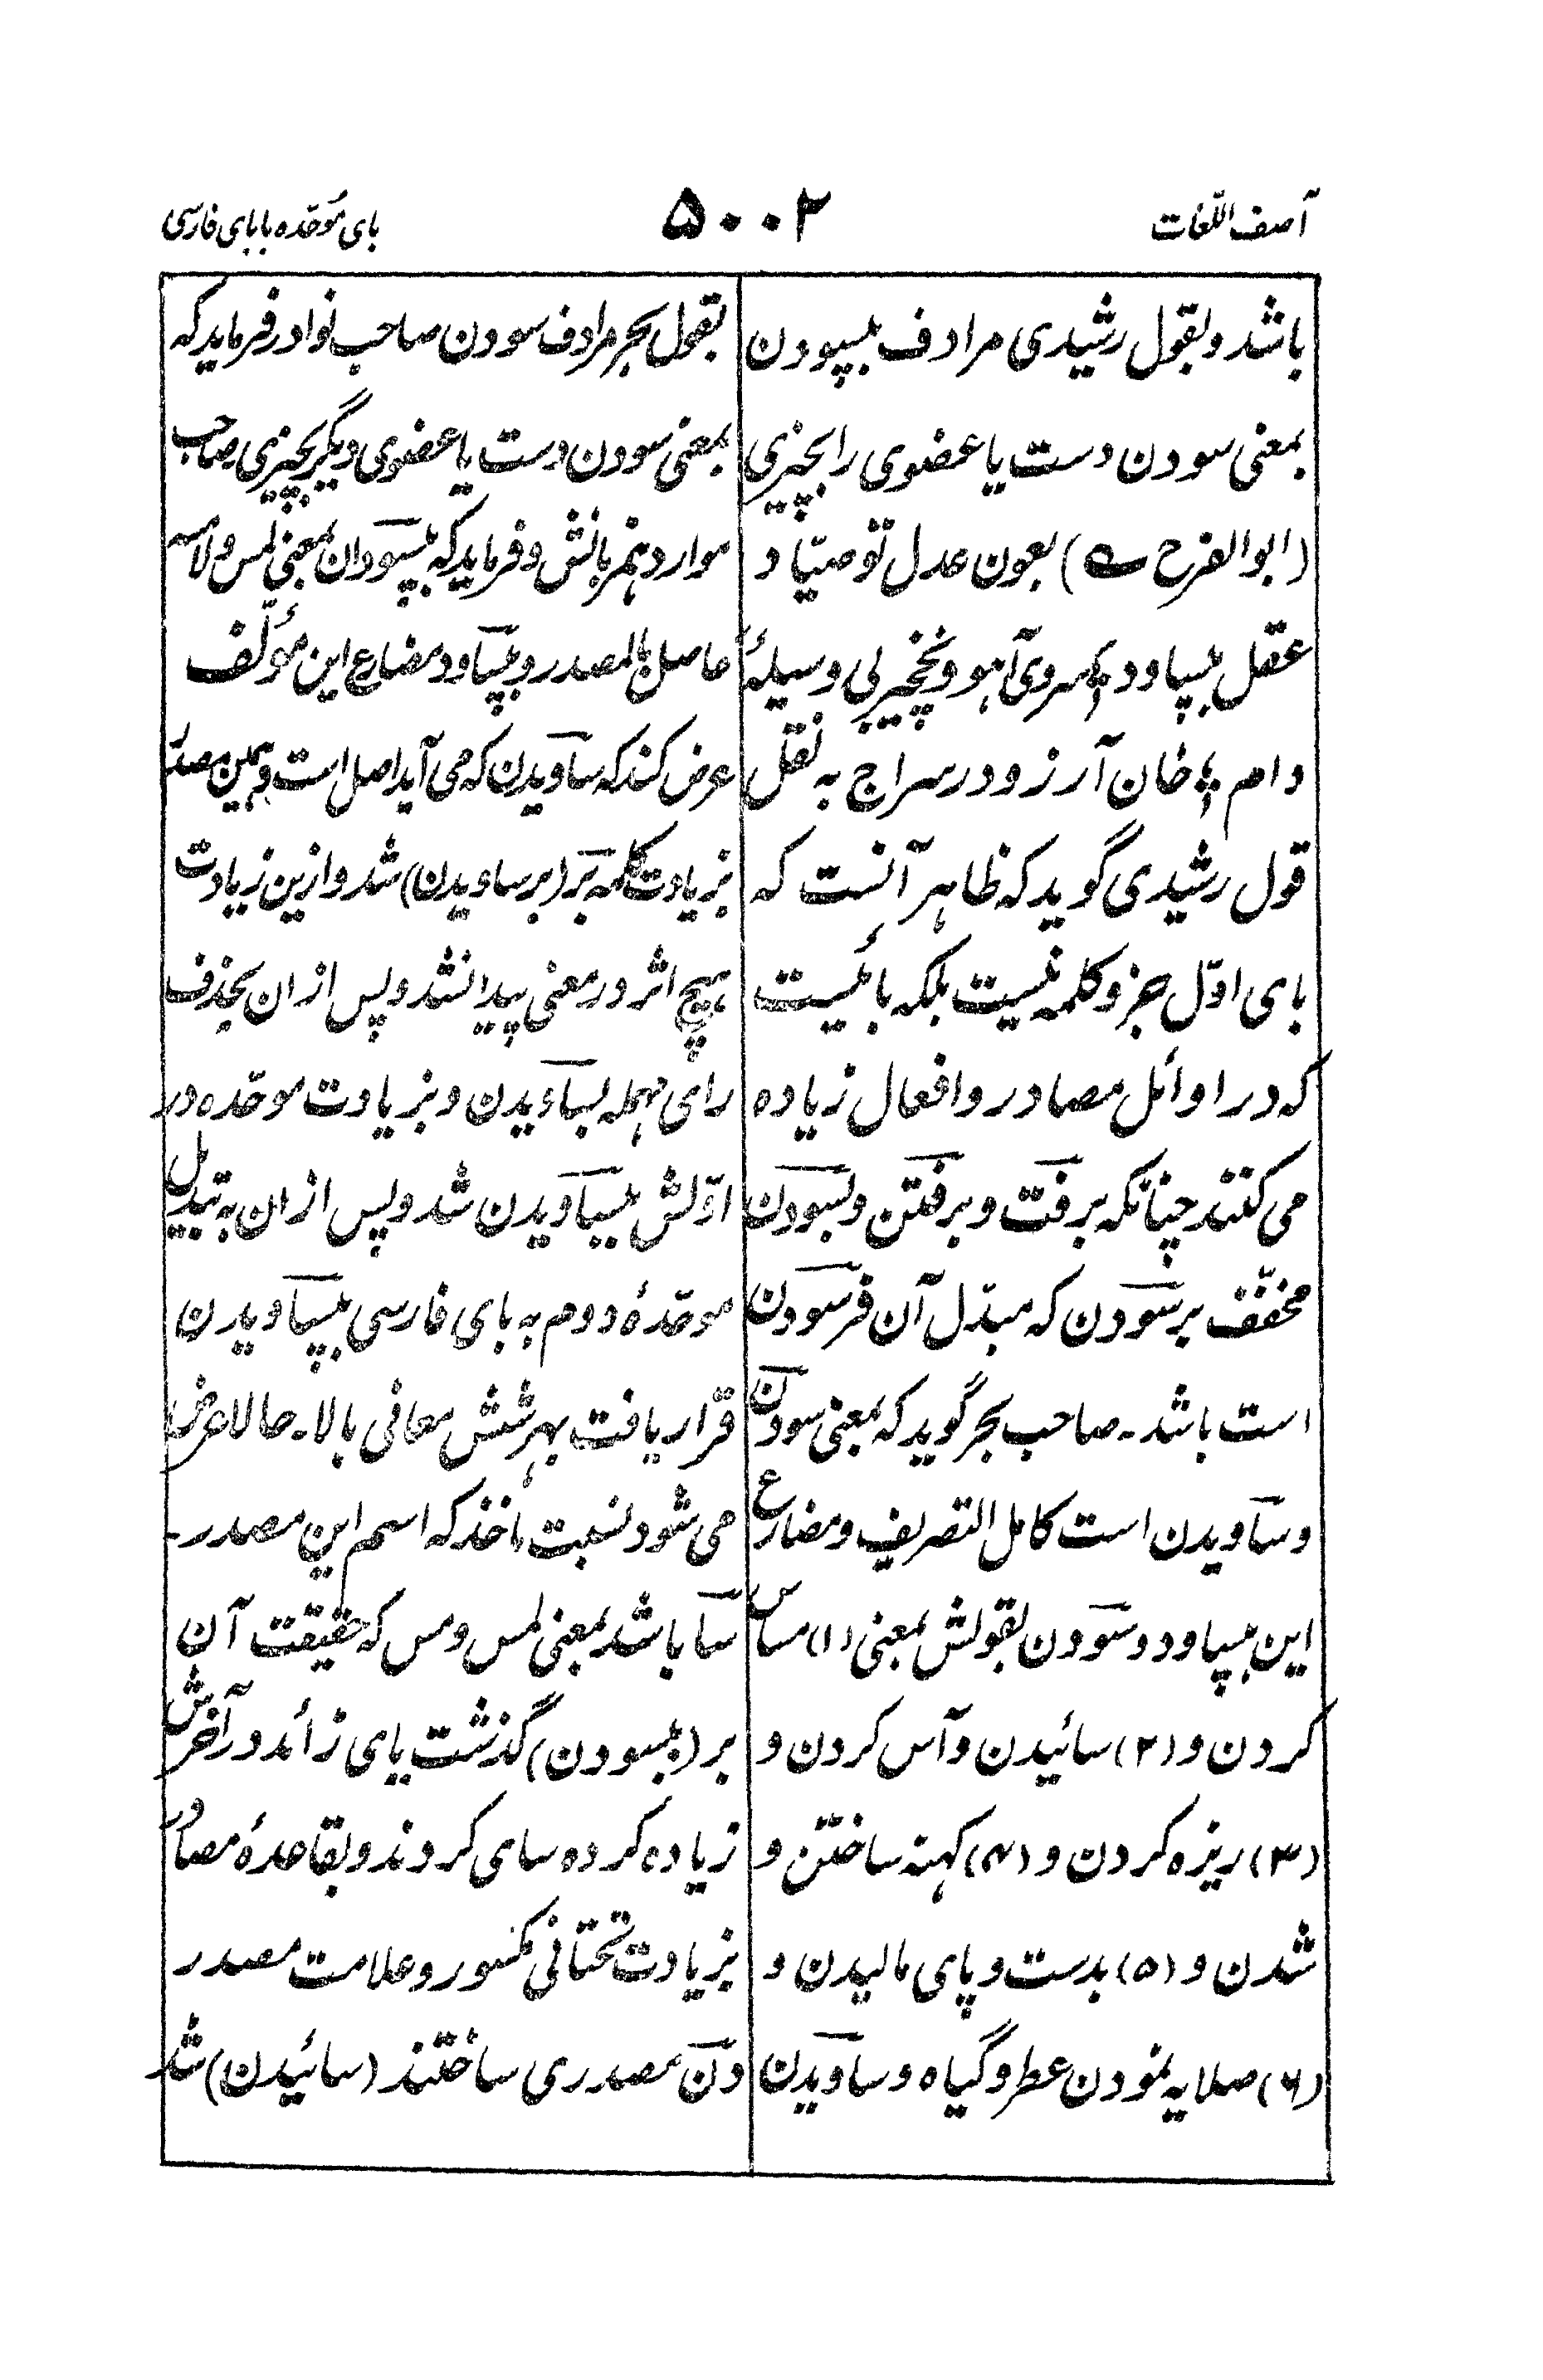 آصف اللّغات
۵۰۰۲
بای مُوحّده با بای فارسی
باشد و بقول رشیدی مرادف ببسپودن
بمعنی سودن دست یا عضوی را بچیزی
(ابوالفرح ے) بعون عدل تو صیّاد و
عقل بپساود ؛ سروی آهو و نخچیر بی وسیلۀ
دام ؛ خان آرزو در سراج به نقل
قول رشیدی گوید که ظاهر آنست که
بای اوّل جزو کلمه نیست بلکه بائیست
که در اوائل مصادر و افعال زیاده
می کنند چنانکه برفت و برفتن و بسودن
مخفّف برسودن که مبدّل آن فرسودن
است باشد۔ صاحب بحر گوید که بمعنی سودن
و ساویدن است کامل التصریف و مضارع
این بپساود و سودن بقولش بمعنی (۱) مساس
کردن و (۲) سائیدن و آس کردن و
(۳) ریزه کردن و (۴) کهنه ساختن و
شدن و (۵) بدست و پای مالیدن و
(۶) صلایه نمودن عطر و گیاه و ساویدن
بقول بحر مرادف سودن صاحب نوادر فرماید که
بمعنی سودن دست یا عضوی دیگر بچیزی صاحب
موارد همزبانش و فرماید که ببسپودان بمعنی لمس و لامسه
حاصل بالمصدر و ببپساود مضارع این مؤلّف
عرض کند که ساویدن که می آید اصل است و همین مصدر
بزیادت کلمه بَر (برساویدن) شد و ازین زیادت
هیچ اثر در معنی پیدا نشد و پس از ان بحذف
رای مهمله بساویدن و بزیادت موحّده در
اوّلش ببساویدن شد و پس از ان به تبدیل
موحّدۀ دوم به بای فارسی ببپساویدن
قرار یافت بهر شش معانی بالا۔ حالا عرض
می شود نسبت ماخذ که اسم این مصدر۔
سا باشد بمعنی لمس و مس که حقیقت آن
بر (ببسودن) گذشت یای زائد در آخرش
زیاده کرده سای کردند و بقاعدۀ مصادر
بزیادت تحتانی مکسور و علامت مصدر
دن مصدری ساختند (سائیدن) شد